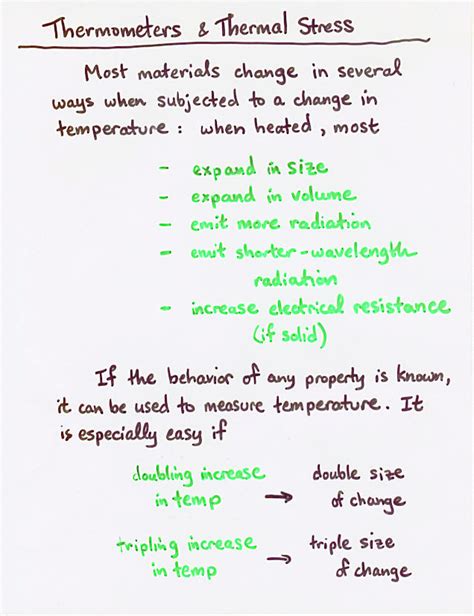 Thermometers & Thermal Stress
Most materials change in several
ways when subjected to a change in
temperature : when heated , most
- expand in size
- expand in volume
- emit more radiation
- emit shorter-wavelength
radiation
- increase electrical resistance
(if solid)
If the behavior of any property is known,
it can be used to measure temperature. It
is especially easy if
doubling increase
in temp → double size
of change
tripling increase
in temp → triple size
of change